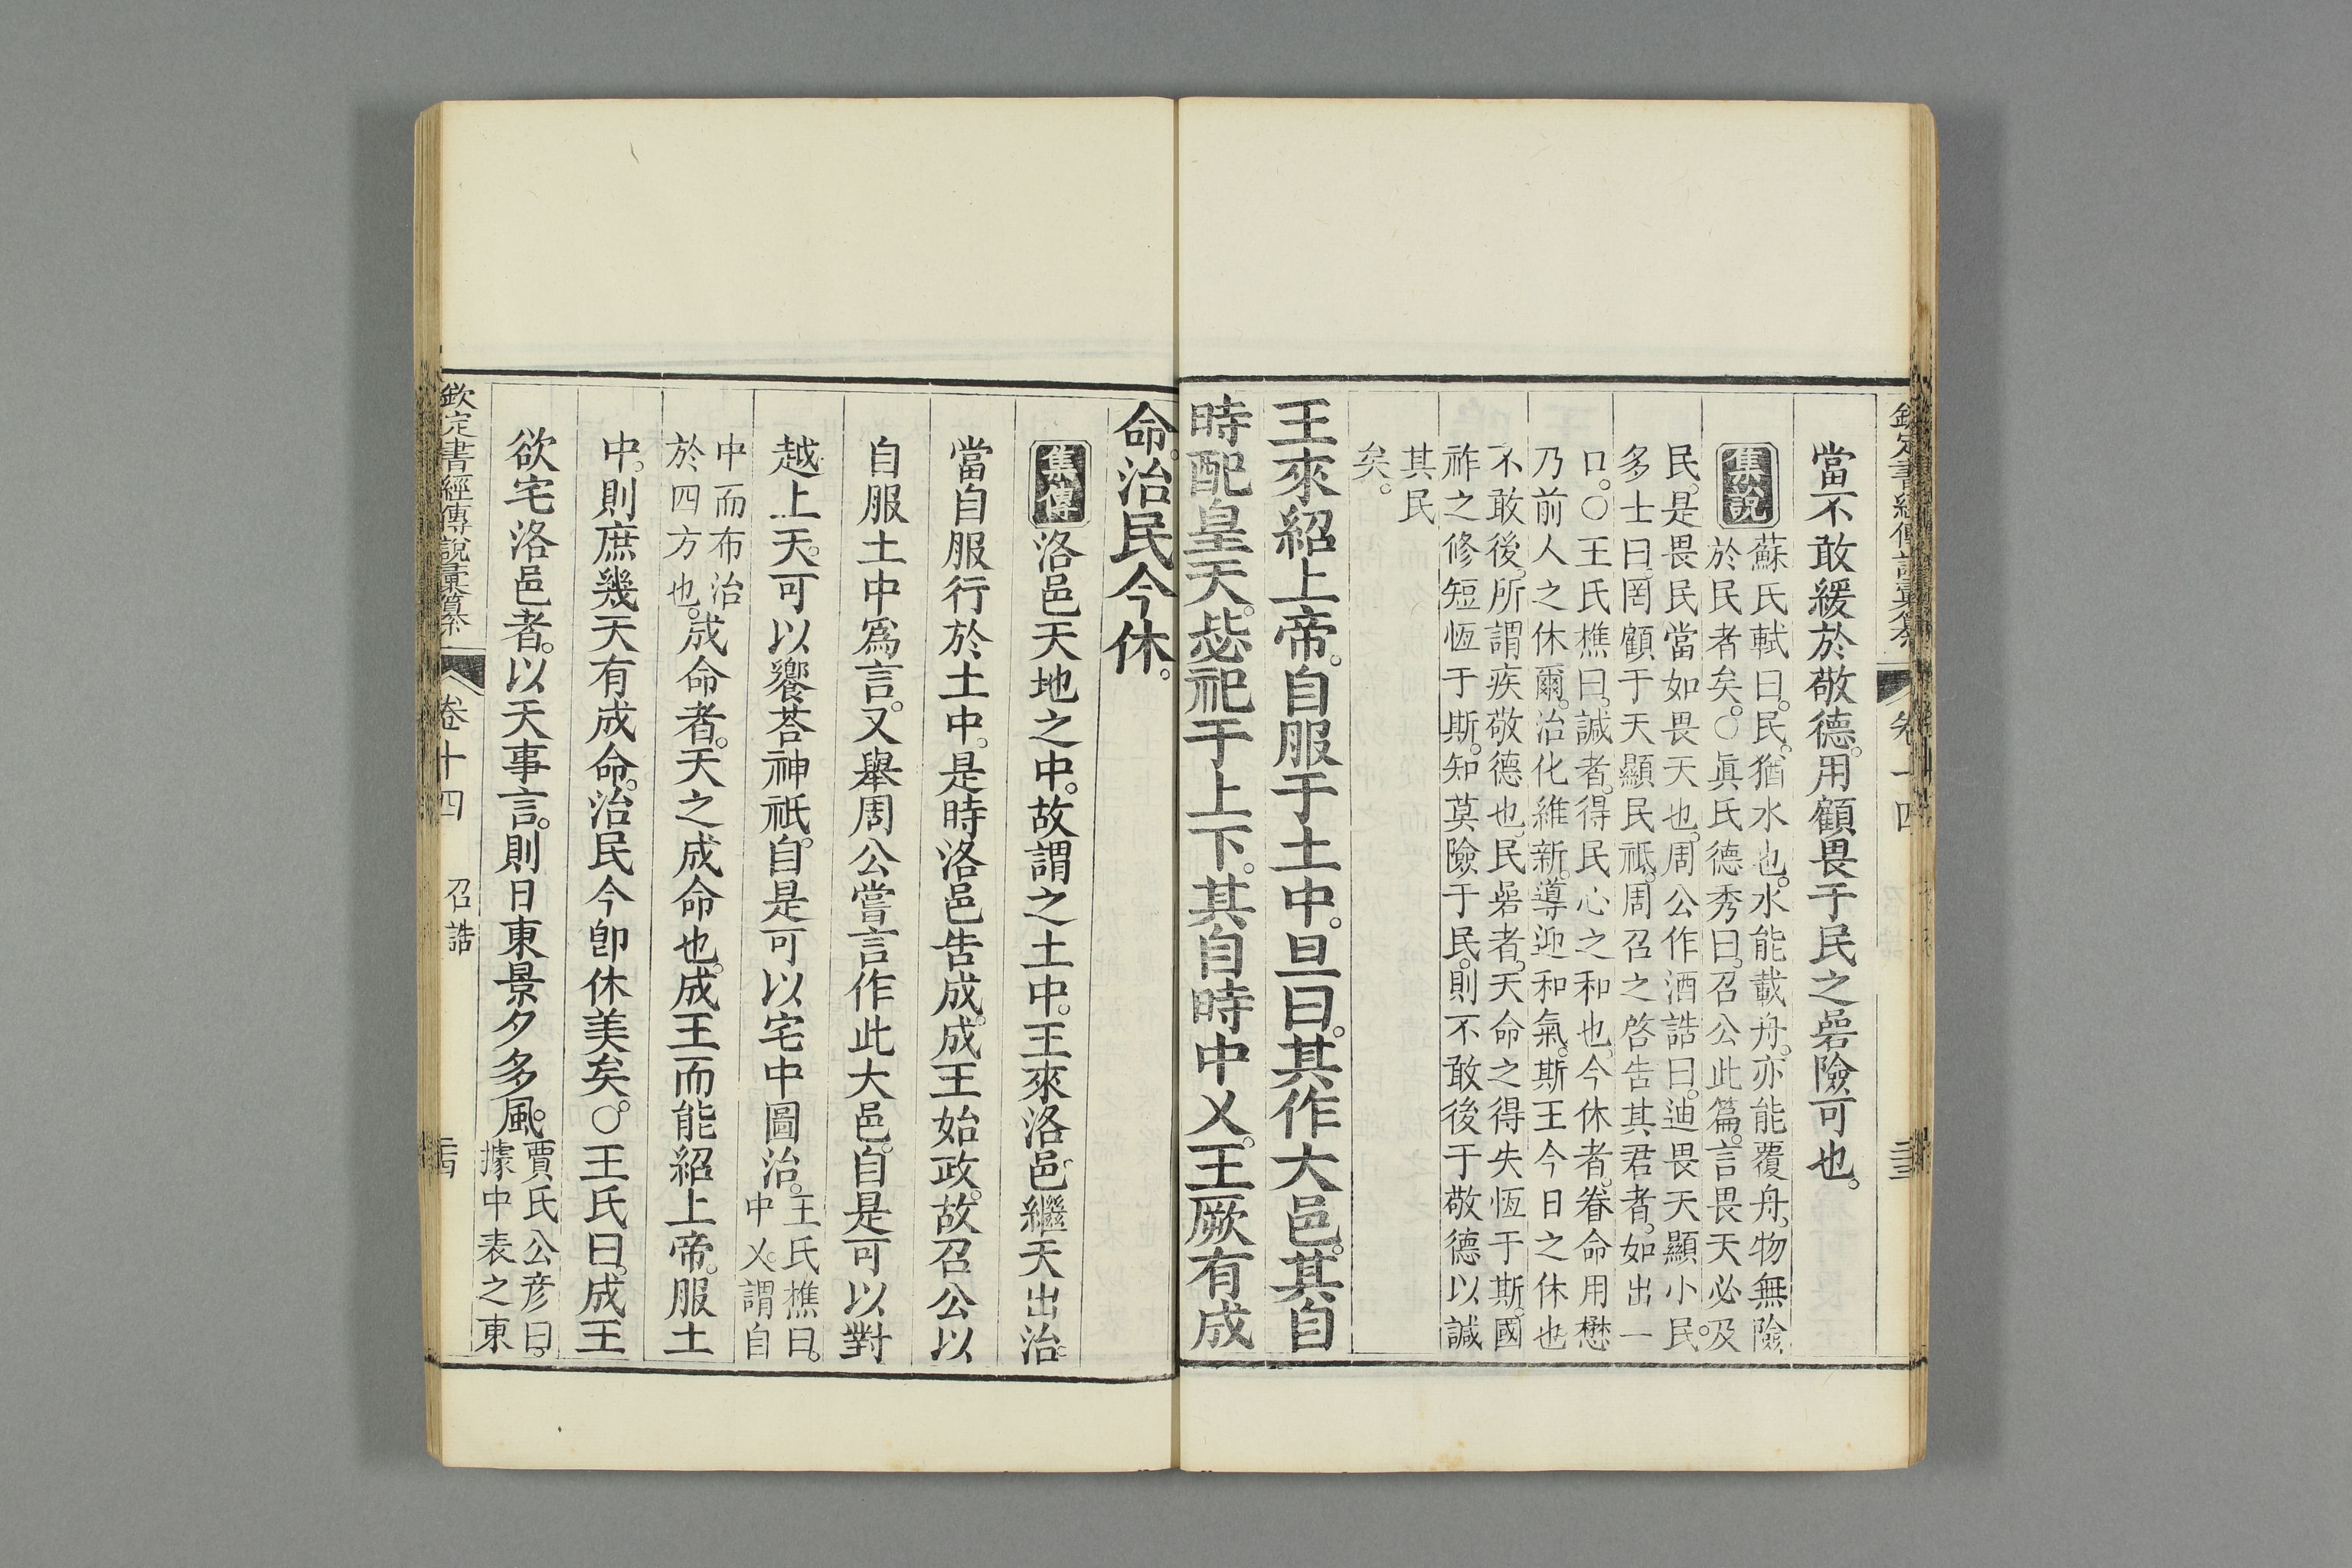 當不敢緩於敬德。用顧畏于民之碞險可也。
集說
蘇氏軾曰。民猶水也。水能載舟。亦能覆舟。物無險
於民者矣。○眞氏德秀曰。召公此篇。言畏天必及
民。是畏民當如畏天也。周公作酒誥曰。迪畏天顯小民。
多士曰。罔顧于天顯民祗。周召之啓告其君者。如出一
口。○王氏樵曰。諴者。得民心之和也。今休者。眷命用懋
乃前人之休爾。治化維新。導迎和氣。斯王今日之休也
不敢後。所謂疾敬德也。民碞者。天命之得失恆于斯。國
祚之修短恆于斯。知莫險于民。則不敢後于敬德以諴
其民
矣。
王來紹上帝。自服于土中。旦曰。其作大邑。其自
時配皇天。毖祀于上下。其自時中乂。王厥有成
命。治民今休。
集傳
洛邑天地之中。故謂之土中。王來洛邑。繼天出治。
當自服行於土中。是時洛邑告成。成王始政。故召公以
自服土中爲言。又舉周公嘗言作此大邑。自是可以對
越上天。可以饗荅神祇。自是可以宅中圖治。
王氏樵曰。
中乂。謂自
中而布治
於四方也。
成命者。天之成命也。成王而能紹上帝。服土
中。則庶幾天有成命。治民今卽休美矣。○王氏曰。成王
欲宅洛邑者。以天事言。則日東景夕多風。
賈氏公彦曰。
據中表之東
欽定書經傳說彙纂
卷十四
召誥